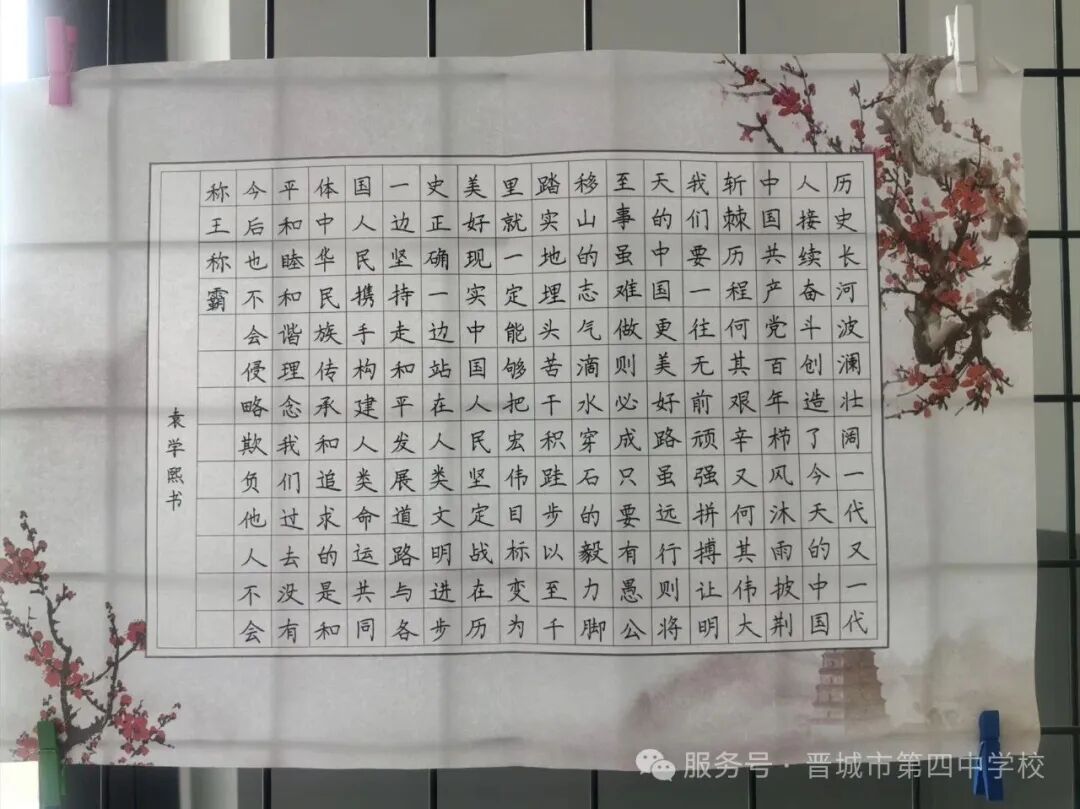 历史长河波澜壮阔一代又一代
人接续奋斗创造了今天的中国
中国共产党百年栉风沐雨披荆
斩棘历程何其艰辛又何其伟大
我们要一往无前顽强拼搏让明
天的中国更美好路虽远行则将
至事虽难做则必成只要有愚公
移山的志气滴水穿石的毅力脚
踏实地埋头苦干积跬步以至千
里就一定能够把宏伟目标变为
美好现实中国人民坚定战在历
史正确一边站在人类文明进步
一边坚持走和平发展道路与各
国人民携手构建人类命运共同
体中华民族传承和追求的是和
平和睦和谐理念我们过去没有
今后也不会侵略欺负他人不会
称王称霸
袁学熙书
服务号·晋城市第四中学校